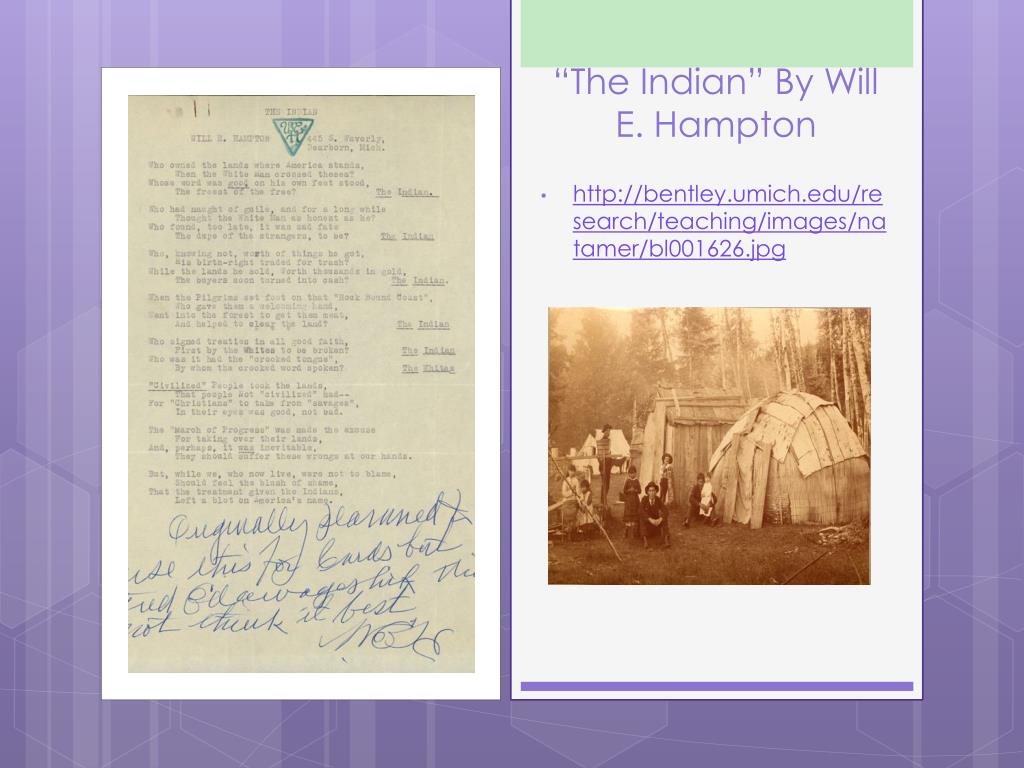 THE INDIAN
WILL E. HAMPTON 445 S. Waverly,
Dearborn, Mich.
Who owned the lands where America stands,
When the White Man crossed theses?
Whose word was good on his own feet stood,
The freest of the free? The Indian.
Who had naught of guile, and for a long while
Thought the White Man as honest as he?
Who found, too late, it was sad fate
The dupe of the strangers, to be? The Indian
Who, knowing not, worth of things he got,
His birth-right traded for trash?
While the lands he sold, Worth thousands in gold,
The buyers soon turned into cash? The Indian.
When the Pilgrims set foot on that "Rock Bound Coast",
Who gave them a welcoming hand,
Went into the forest to get them meat,
And helped to clear the land? The Indian
Who signed treaties in all good faith,
First by the Whites to be broken? The Indian
Who was it had the "crooked tongue",
By whom the crooked word spoken? The Whites
"Civilized" People took the lands,
That people Not "civilized" had--
For "Christians" to take from "savages",
In their eyes was good, not bad.
The "March of Progress" was made the excuse
For taking over their lands,
And, perhaps, it was inevitable,
They should suffer these wrongs at our hands.
But, while we, who now live, were not to blame,
Should feel the blush of shame,
That the treatment given the Indians,
Left a blot on America's name.
Originally planned to
use this for Cards but
not think it best
WEH
“The Indian” By Will
E. Hampton
• http://bentley.umich.edu/re
search/teaching/images/na
tamer/bl001626.jpg